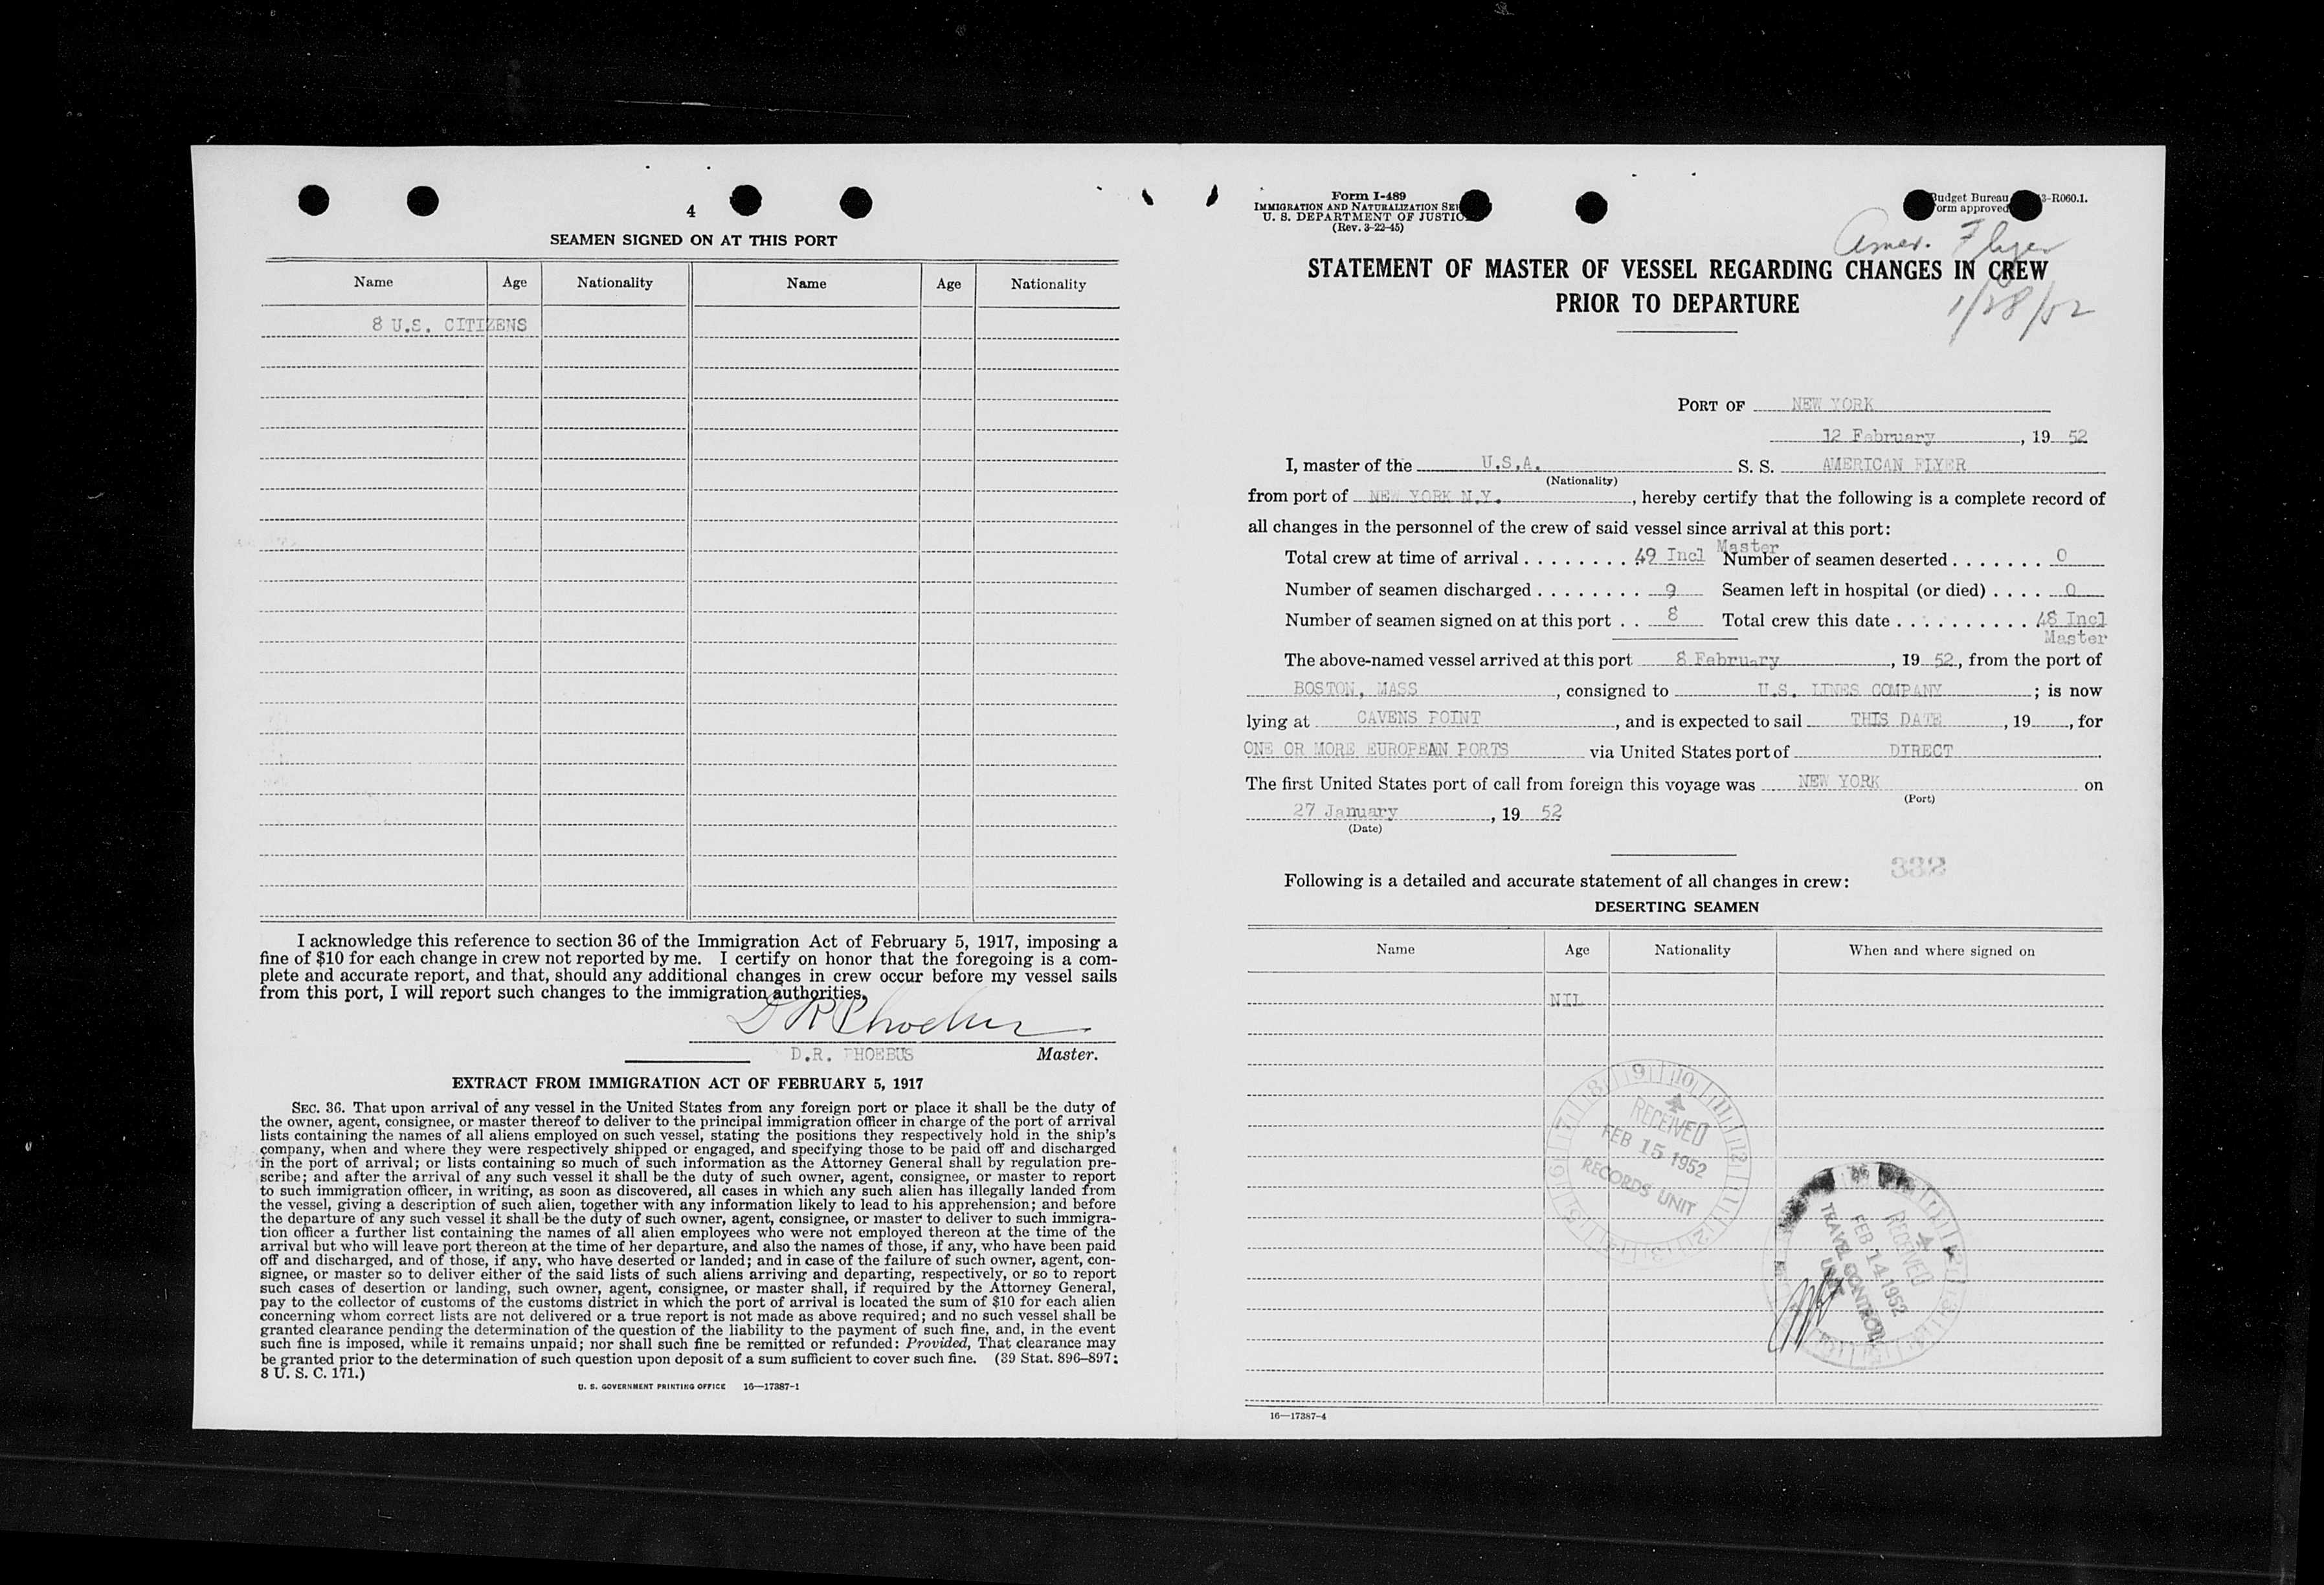 4
SEAMEN SIGNED ON AT THIS PORT
Name Age Nationality Name Age Nationality
8 U.S. CITIZENS
I acknowledge this reference to section 36 of the Immigration Act of February 5, 1917, imposing a
fine of $10 for each change in crew not reported by me. I certify on honor that the foregoing is a com-
plete and accurate report, and that, should any additional changes in crew occur before my vessel sails
from this port, I will report such changes to the immigration authorities.
D R Phoebus
D.R. PHOEBUS Master.
EXTRACT FROM IMMIGRATION ACT OF FEBRUARY 5, 1917
SEC. 36. That upon arrival of any vessel in the United States from any foreign port or place it shall be the duty of
the owner, agent, consignee, or master thereof to deliver to the principal immigration officer in charge of the port of arrival
lists containing the names of all aliens employed on such vessel, stating the positions they respectively hold in the ship's
company, when and where they were respectively shipped or engaged, and specifying those to be paid off and discharged
in the port of arrival; or lists containing so much of such information as the Attorney General shall by regulation pre-
scribe; and after the arrival of any such vessel it shall be the duty of such owner, agent, consignee, or master to report
to such immigration officer, in writing, as soon as discovered, all cases in which any such alien has illegally landed from
the vessel, giving a description of such alien, together with any information likely to lead to his apprehension; and before
the departure of any such vessel it shall be the duty of such owner, agent, consignee, or master to deliver to such immigra-
tion officer a further list containing the names of all alien employees who were not employed thereon at the time of the
arrival but who will leave port thereon at the time of her departure, and also the names of those, if any, who have been paid
off and discharged, and of those, if any, who have deserted or landed; and in case of the failure of such owner, agent, con-
signee, or master so to deliver either of the said lists of such aliens arriving and departing, respectively, or so to report
such cases of desertion or landing, such owner, agent, consignee, or master shall, if required by the Attorney General,
pay to the collector of customs of the customs district in which the port of arrival is located the sum of $10 for each alien
concerning whom correct lists are not delivered or a true report is not made as above required; and no such vessel shall be
granted clearance pending the determination of the question of the liability to the payment of such fine, and, in the event
such fine is imposed, while it remains unpaid; nor shall such fine be remitted or refunded: Provided, That clearance may
be granted prior to the determination of such question upon deposit of a sum sufficient to cover such fine. (39 Stat. 896–897;
8 U. S. C. 171.)
U. S. GOVERNMENT PRINTING OFFICE 16—17387-1
Form I-489
IMMIGRATION AND NATURALIZATION SE
U. S. DEPARTMENT OF JUSTIC
(Rev. 3-22-45)
Budget Bureau 3-R060.1.
orm approved
Amer. Flyer
STATEMENT OF MASTER OF VESSEL REGARDING CHANGES IN CREW
PRIOR TO DEPARTURE
1/28/52
PORT OF NEW YORK
12 February, 19 52
I, master of the U.S.A. S. S. AMERICAN FLYER
(Nationality)
from port of NEW YORK N.Y., hereby certify that the following is a complete record of
all changes in the personnel of the crew of said vessel since arrival at this port:
Total crew at time of arrival . . . . . . . . 49 Incl Master Number of seamen deserted . . . . . . . 0
Number of seamen discharged . . . . . . . . 9 Seamen left in hospital (or died) . . . . 0
Number of seamen signed on at this port . . 8 Total crew this date . . . . . . . . . . 48 Incl
Master
The above-named vessel arrived at this port 8 February, 19 52, from the port of
BOSTON, MASS, consigned to U.S. LINES COMPANY; is now
lying at CAVENS POINT, and is expected to sail THIS DATE, 19 , for
ONE OR MORE EUROPEAN PORTS via United States port of DIRECT.
The first United States port of call from foreign this voyage was NEW YORK on
(Port)
27 January, 19 52
(Date)
332
Following is a detailed and accurate statement of all changes in crew:
DESERTING SEAMEN
Name Age Nationality When and where signed on
NIL
RECEIVED
FEB 15 1952
RECORDS UNIT
RECEIVED
FEB 14 1952
TRAVEL CONTROL
UNIT
16—17387-4